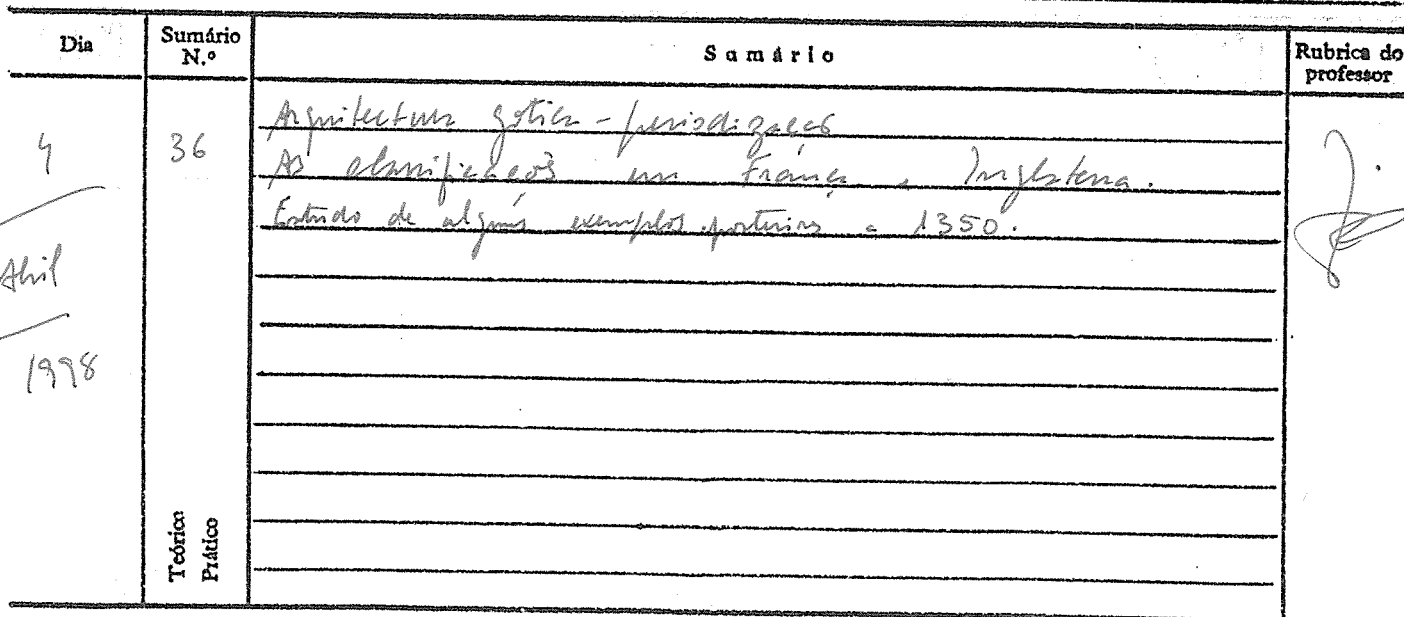 Dia
Sumário N.º
Sumário
Rubrica do professor
4
Abril
1998
36
Arquitectura gótica - periodização
As classificações em França e Inglaterra.
Estudo de alguns exemplos posteriores a 1350.
Teórico
Prático